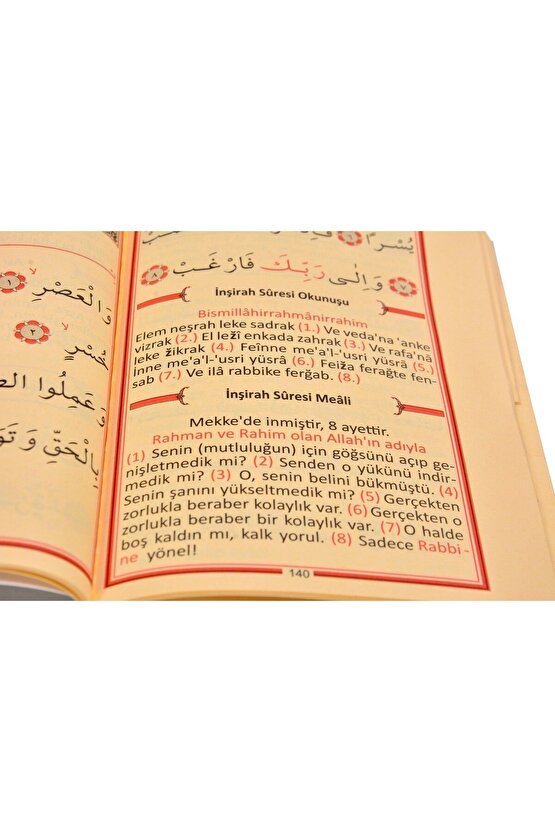 وَالْعَصْرِ ١
خُسْرٍ ٢
عَمِلُوا
وَاِلٰى رَبِّكَ فَارْغَبْ ٨
٧
İnşirah Sûresi Okunuşu
Bismillâhirrahmânirrahim
Elem neşrah leke sadrak (1.) Ve veda'na 'anke
vizrak (2.) Elležî enkada zahrak (3.) Ve rafa'nâ
leke žikrak (4.) Feînne me'a'l-'usri yüsrâ (5.)
İnne me'a'l-'usri yüsrâ (6.) Feiža ferağte fen-
sab (7.) Ve ilâ rabbike ferğab. (8.)
İnşirah Sûresi Meâli
Mekke'de inmiştir, 8 ayettir.
Rahman ve Rahim olan Allah'ın adıyla
(1) Senin (mutluluğun) için göğsünü açıp ge-
nişletmedik mi? (2) Senden o yükünü indir-
medik mi? (3) O, senin belini bükmüştü. (4)
Senin şanını yükseltmedik mi? (5) Gerçekten
zorlukla beraber kolaylık var. (6) Gerçekten o
zorlukla beraber bir kolaylık var. (7) O halde
boş kaldın mı, kalk yorul. (8) Sadece Rabbi-
ne yönel!
140